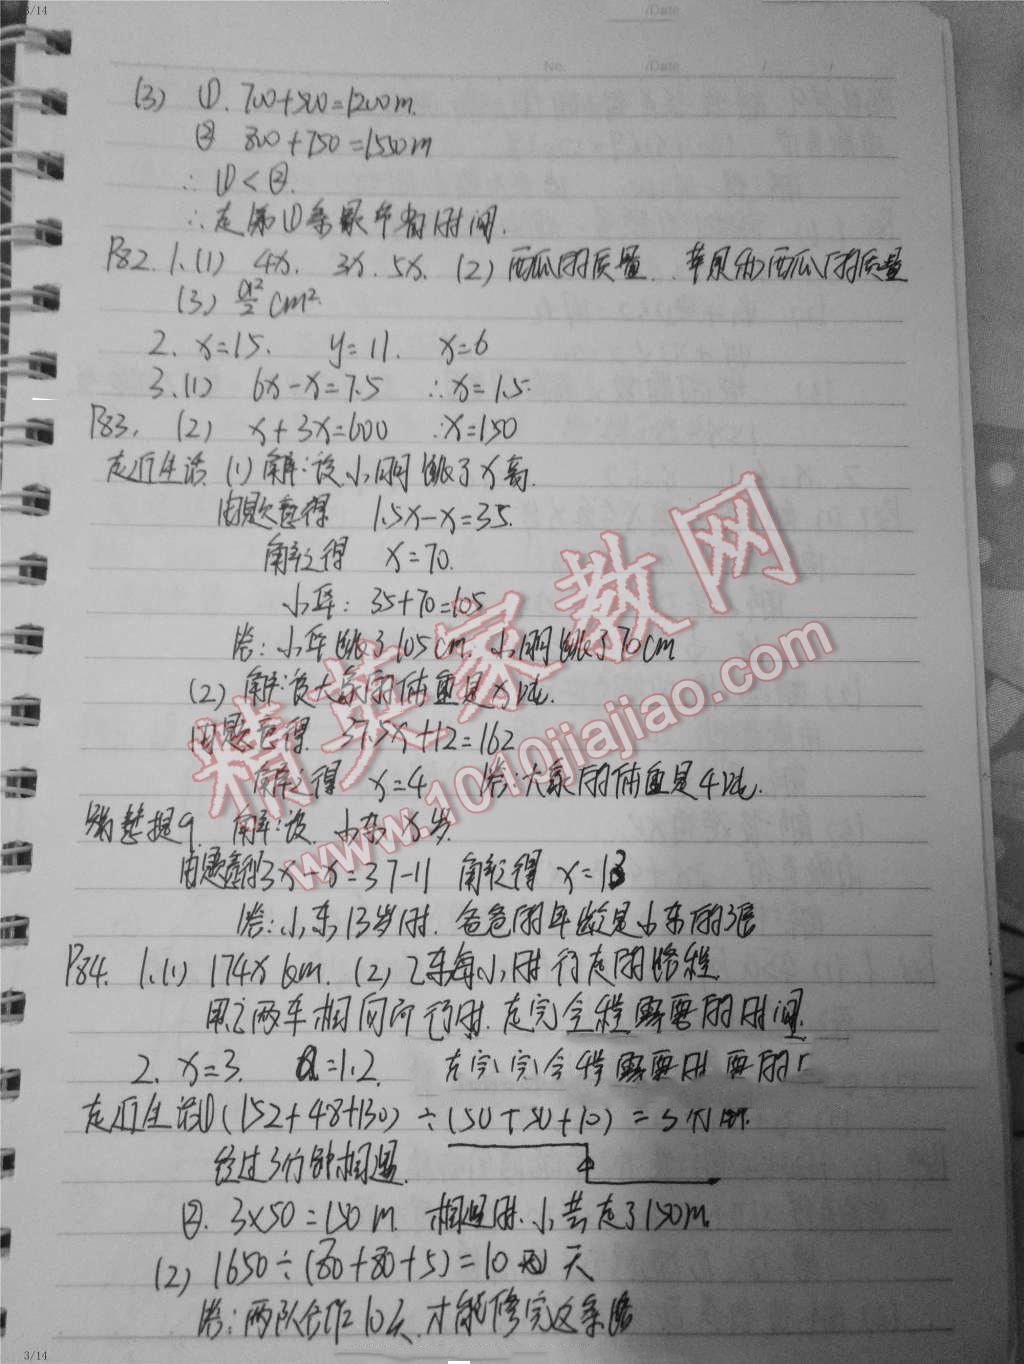 3/14
/Date
No. /Date / /
(3) ①. 700+500=1200m.
② 800+750=1550m
∴ ①<②.
∴走第①条最节省时间.
P82. 1.(1) 4x. 3x. 5x. (2) 西瓜的质量. 苹果和西瓜的质量
(3) a²/2 cm².
2. x=15. y=11. x=6
3.(1) 6x-x=7.5 ∴x=1.5.
P83. (2) x+3x=600 ∴x=150
走近生活 (1) 解:设小刚跳了x高.
由题意得 1.5x-x=35.
解之得 x=70.
小军: 35+70=105
答:小军跳了105cm. 小刚跳了70cm
(2) 解:设大象的体重是x吨.
由题意得. 37.5x+12=162
解之得 x=4 答:大象的体重是4吨.
解:设 小东x岁.
由题意得3x-x=37-11 解之得 x=13
答:小东13岁时. 爸爸的年龄是小东的3倍
P84. 1.(1) 174x km. (2) 乙车每小时行走的路程
甲乙两车相向而行时.走完全程需要的时间.
2. x=3. a=1.2.
走近生活① (152+48+130)÷(50+50+10)=3分钟.
经过3分钟相遇.
②. 3×50=150m. 相遇时.小芸走了150m.
(2) 1650÷(80+80+5)=10 天
答:两队合作10天.才能修完这条路
精英家教网
www.1010jiajiao.com
3/14